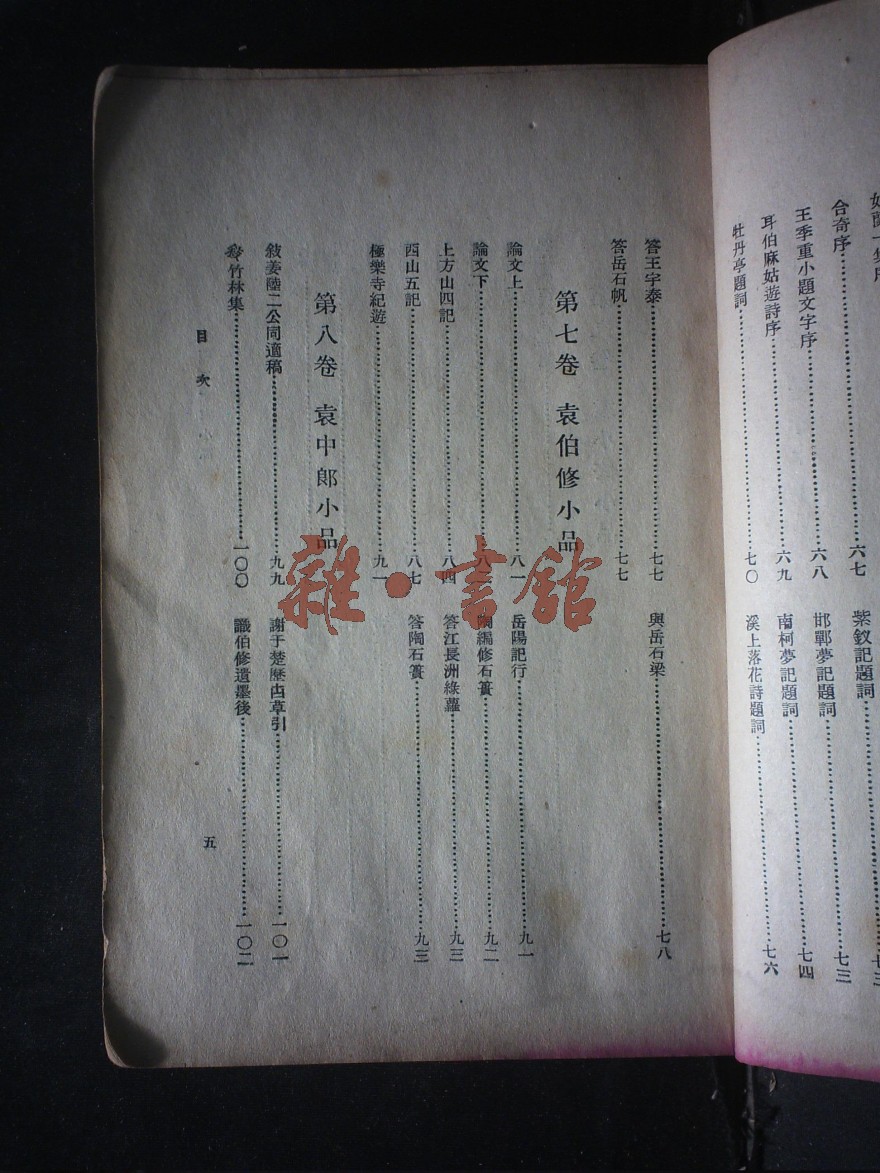 合奇序……六七
紫釵記題詞……七三
王季重小題文字序……六八
邯鄲夢記題詞……七三
耳伯麻姑遊詩序……六九
南柯夢記題詞……七四
牡丹亭題詞……七〇
溪上落花詩題詞……七六
答王宇泰……七七
與岳石梁……七八
答岳石帆……七七
第七卷 袁伯修小品
論文上……八一
岳陽記行……九一
論文下……八二
九二
上方山四記……八四
答江長洲綠蘿……九三
西山五記……八七
答陶石簣……九三
極樂寺紀遊……九一
第八卷 袁中郎小品
敍姜陸二公同適稿……九九
謝于楚歷古草引……一〇一
竹林集……一〇〇
識伯修遺墨後……一〇二
目次
五
雜·書館